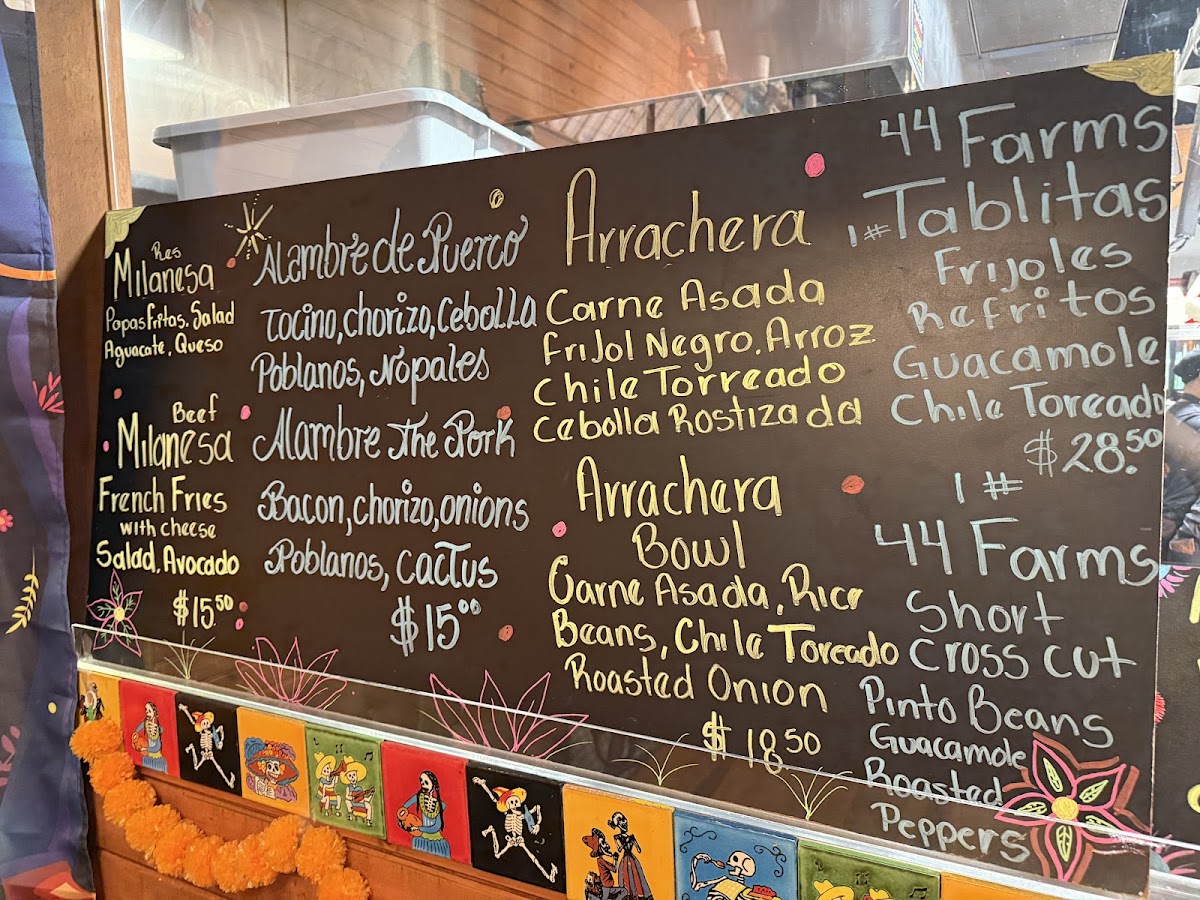 Res
Milanesa
Papas fritas. Salad
Aguacate, Queso
Beef
Milanesa
French Fries
with cheese
Salad, Avocado
$15.50
Alambre de Puerco
Tocino, chorizo, Cebolla
Poblanos, Nopales
Alambre The Pork
Bacon, chorizo, onions
Poblanos, cactus
$15.00
Arrachera
Carne Asada
Frijol Negro. Arroz
Chile Torreado
Cebolla Rostizada
Arrachera
Bowl
Carne Asada, Rice
Beans, Chile Toreado
Roasted Onion
$18.50
44 Farms
1# Tablitas
Frijoles
Refritos
Guacamole
Chile Toreado
$28.50
1#
44 Farms
Short
Cross cut
Pinto Beans
Guacamole
Roasted
Peppers